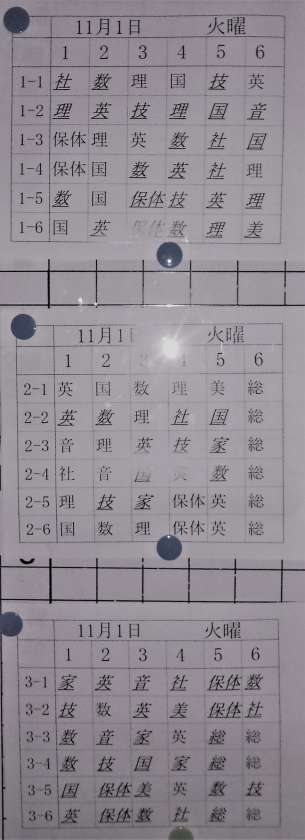 11月1日 火曜
1 2 3 4 5 6
1-1 社 数 理 国 技 英
1-2 理 英 技 理 国 音
1-3 保体 理 英 数 社 国
1-4 保体 国 数 英 社 理
1-5 数 国 保体 技 英 理
1-6 国 英 保体 数 理 美
11月1日 火曜
1 2 3 4 5 6
2-1 英 国 数 理 美 総
2-2 英 数 理 社 国 総
2-3 音 理 英 技 家 総
2-4 社 音 国 英 数 総
2-5 理 技 家 保体 英 総
2-6 国 数 理 保体 英 総
11月1日 火曜
1 2 3 4 5 6
3-1 家 英 音 社 保体 数
3-2 技 数 英 美 保体 社
3-3 数 音 家 英 総 総
3-4 数 技 国 家 総 総
3-5 国 保体 美 英 数 技
3-6 英 保体 数 社 総 総